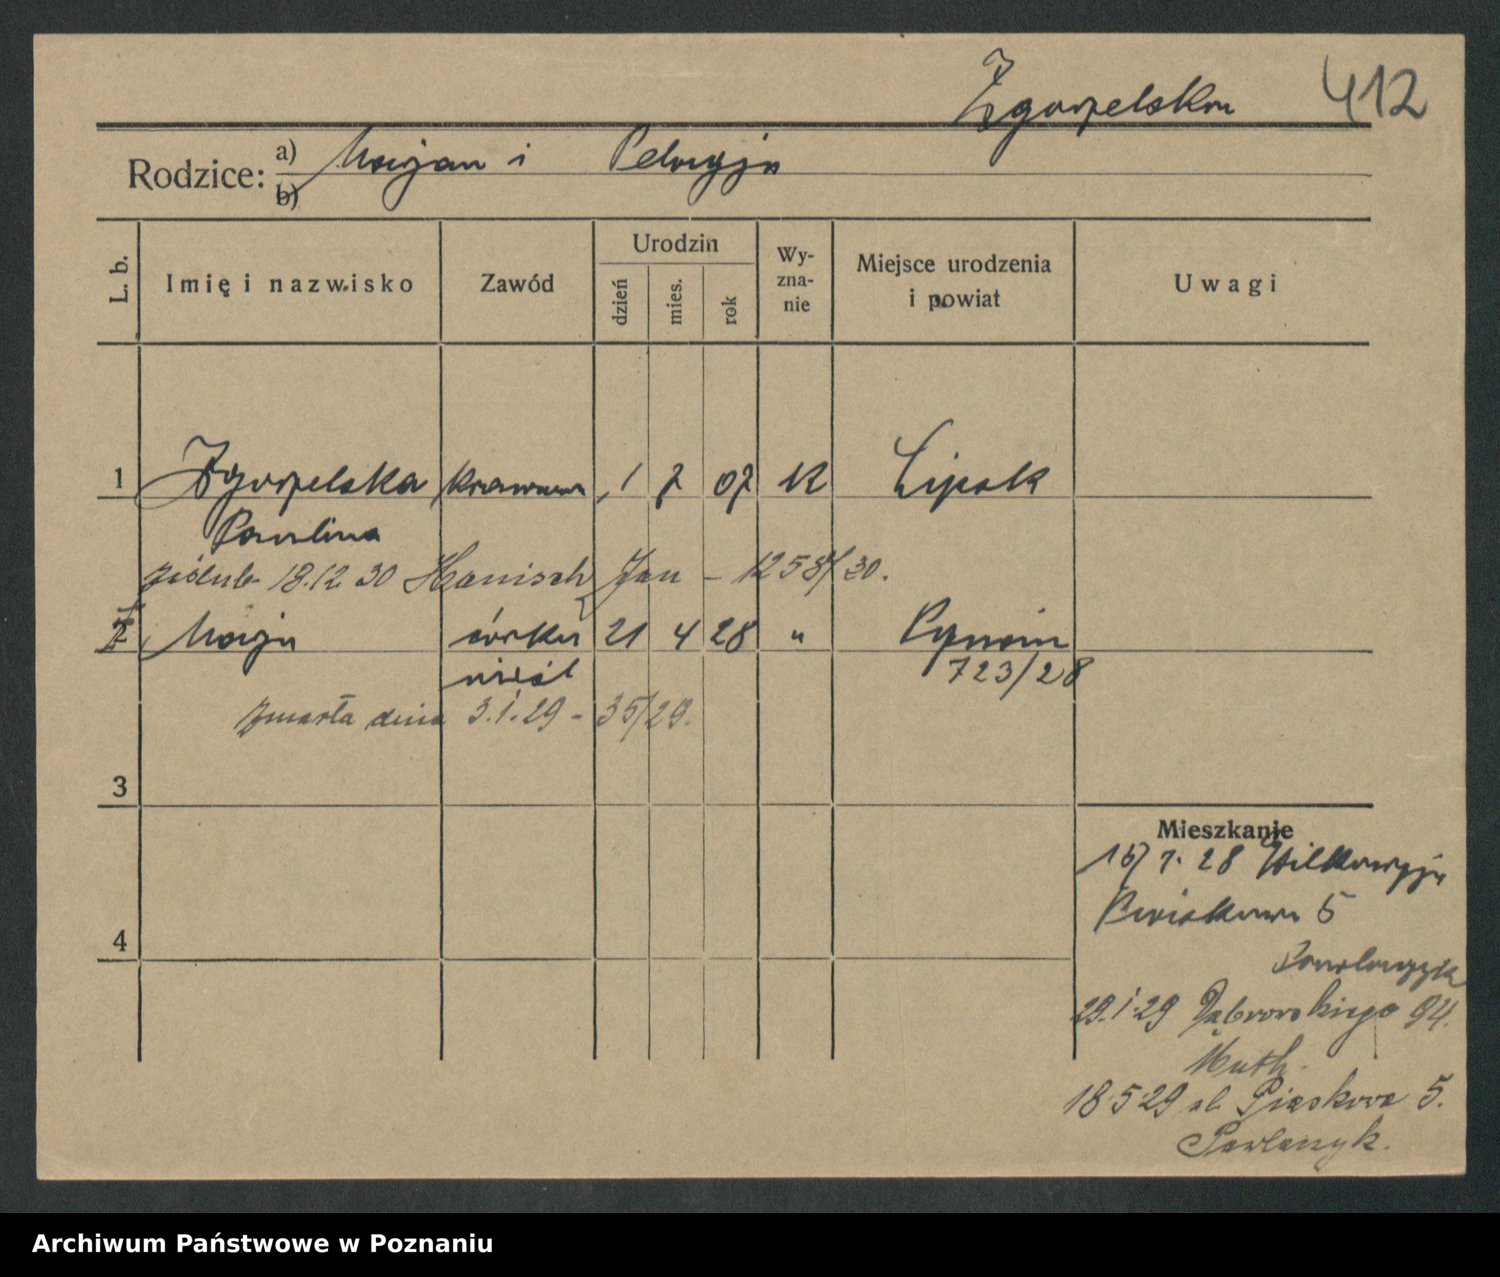 Zgorzelska 412
Rodzice: a) Marjan i Pelagja
b)
L. b. Imię i nazwisko Zawód Urodzin dzień mies. rok Wy-zna-nie Miejsce urodzenia i powiat Uwagi
1 Zgorzelska krawcowa 1 7 07 K Lipsk
Paulina
zaślub 18.12 30 Hanisch Jan – 1258/30.
2 Marja córka 21 4 28 "
nieśl 723/28
zmarła dnia 3.1.29 – 35/29.
3
Mieszkanie
16/7. 28 Wilkowyja
4
Piaskowa 5
Pawlaczyk
29.1.29 Dąbrowskiego 94.
Muth.
18.5.29 ul. Piaskowa 5.
Pawlaczyk.
Archiwum Państwowe w Poznaniu